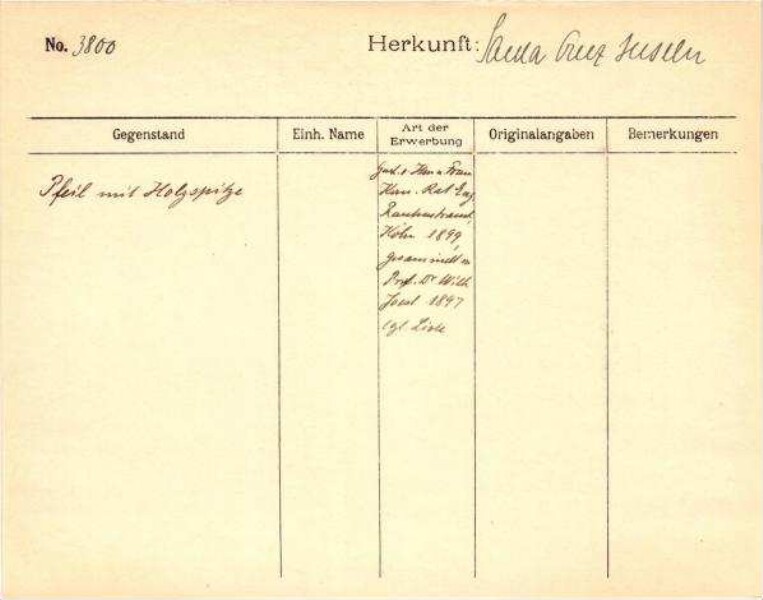 No. 3800
Herkunft: Santa Cruz Inseln
Gegenstand
Einh. Name
Art der
Erwerbung
Originalangaben
Bemerkungen
Pfeil mit Holzspitze
Gest. v. Herrn u. Frau
Kom. Rat Eug.
Rautenstrauch,
Köln 1899,
gesammelt v.
Prof. Dr Wilh.
Joest 1897
cgl Liste